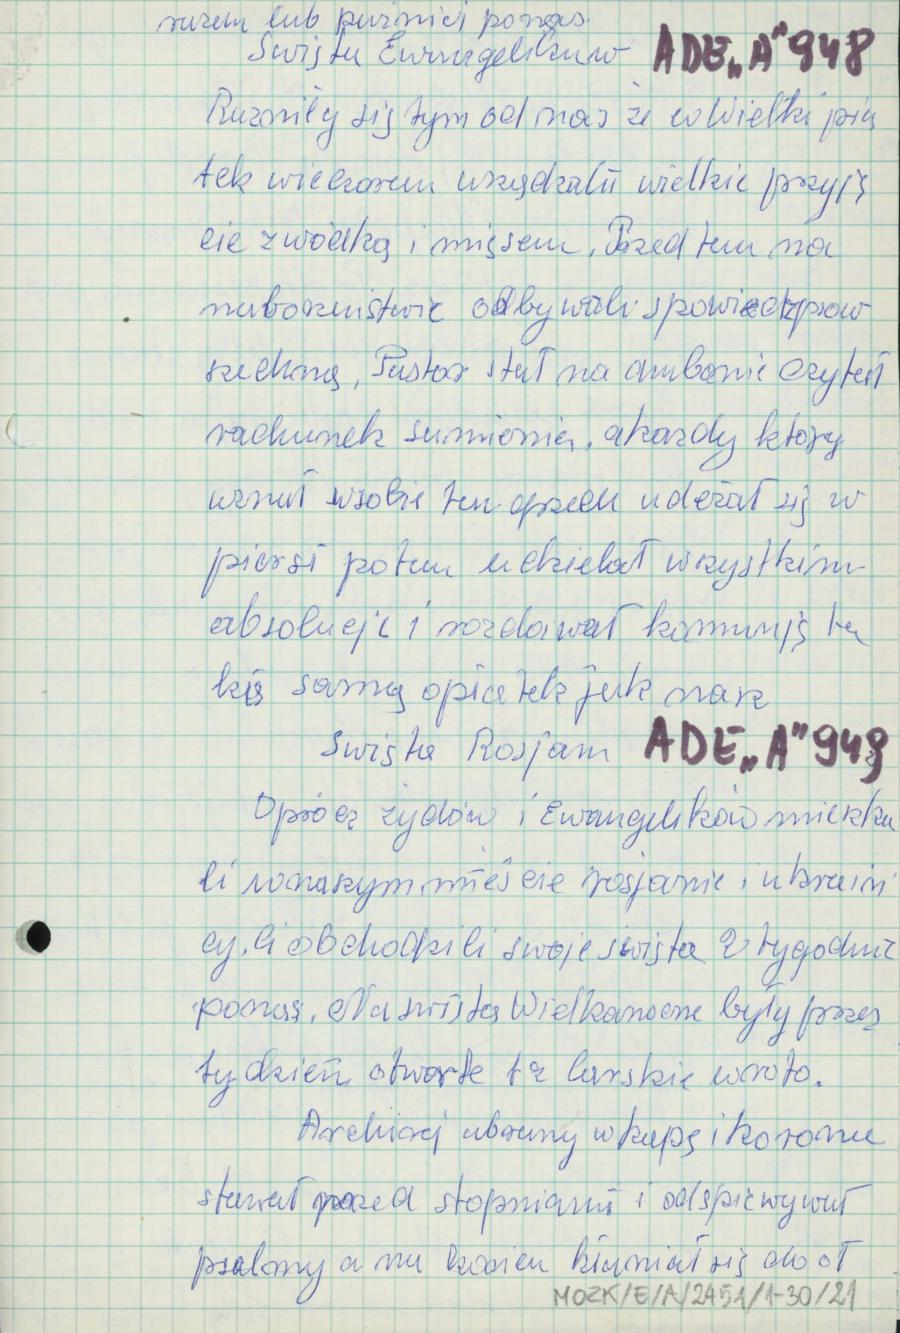 razem lub puźniej ponas.
Swięta Ewangelikuw ADE„A"948
Ruznily się tym od nas że w Wielki pią
tek wieczorem urządzali wielkie przyję
cie z wódką i mięsem. Przed tem na
nabożeństwie odbywali spowiedz pow
szechną, Pastor stał na ambonie czytał
rachunek sumienia, a kazdy ktory
uznał wsobie ten grzech udeżał się w
piersi potem udzielał wszystkim
absolucje i rozdawał komunję ta
ką samą opłatek jak nasz
Swięta Rosjam ADE„A"949
Oprócz żydów i Ewangelików mieszka
li w naszym mieście rosjanie i ukrain
cy, ci obchodzili swoje święta 2 tygodnie
ponas. Na swięta Wielkanocne były przez
tydzień otwarte tz carskie wrota.
Archirej ubrany w kapę i korone
stawał przed stopniami i odspiewywał
psalmy a na koniec kłaniał się do oł
MOZK/E/A/2451/1-30/21